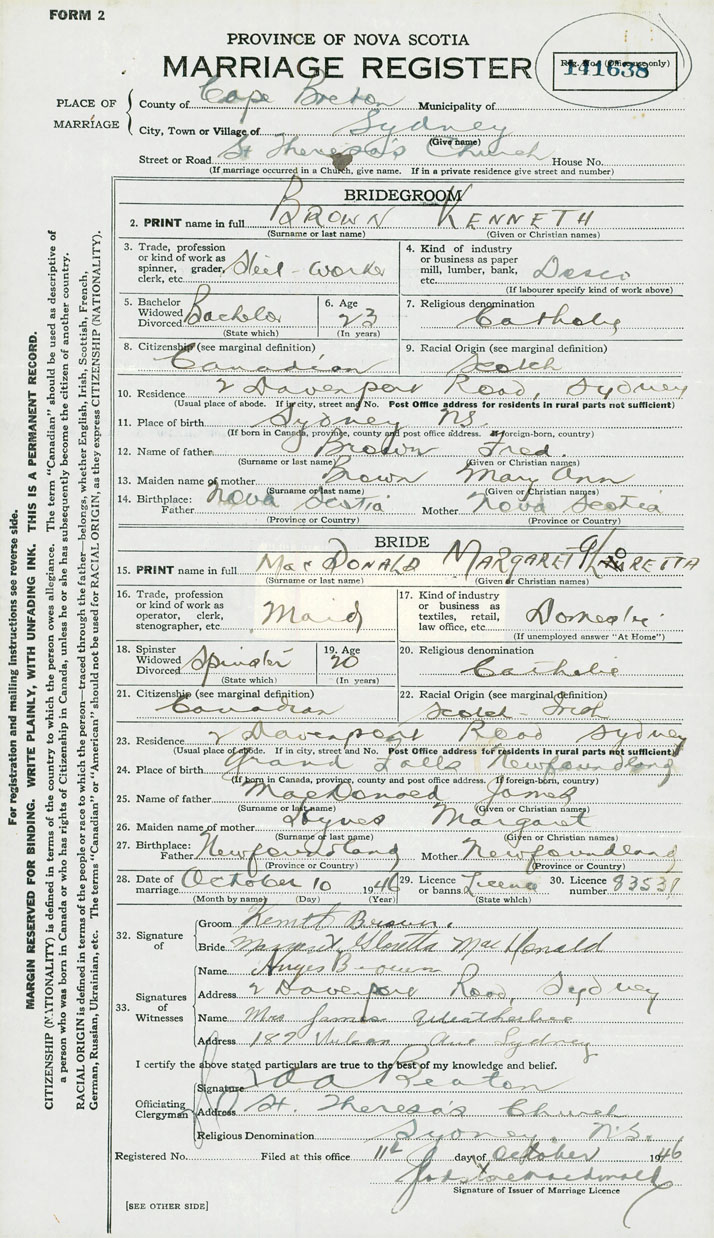 FORM 2
PROVINCE OF NOVA SCOTIA
MARRIAGE REGISTER
Reg. No. (Office use only)
141638
PLACE OF MARRIAGE
County of Cape Breton Municipality of
City, Town or Village of Sydney
(Give name)
Street or Road St Theresa's Church House No.
(If marriage occurred in a Church, give name. If in a private residence give street and number)
BRIDEGROOM
2. PRINT name in full BROWN KENNETH
(Surname or last name) (Given or Christian names)
3. Trade, profession or kind of work as spinner, grader, clerk, etc. Steel-worker
4. Kind of industry or business as paper mill, lumber, bank, etc. Dosco
(If labourer specify kind of work above)
5. Bachelor Widowed Divorced Bachelor
(State which)
6. Age 23
(In years)
7. Religious denomination Catholic
8. Citizenship (see marginal definition) Canadian
9. Racial Origin (see marginal definition) Scotch
10. Residence 2 Davenport Road, Sydney
(Usual place of abode. If in city, street and No. Post Office address for residents in rural parts not sufficient)
11. Place of birth Sydney N.S.
(If born in Canada, province, county and post office address. If foreign-born, country)
12. Name of father Brown Fred.
(Surname or last name) (Given or Christian names)
13. Maiden name of mother Brown Mary Ann
(Surname or last name) (Given or Christian names)
14. Birthplace: Father Nova Scotia Mother Nova Scotia
(Province or Country) (Province or Country)
BRIDE
15. PRINT name in full MacDONALD MARGARET
(Surname or last name) (Given or Christian names)
16. Trade, profession or kind of work as operator, clerk, stenographer, etc. Maid
17. Kind of industry or business as textiles, retail, law office, etc. Domestic
(If unemployed answer "At Home")
18. Spinster Widowed Divorced Spinster
(State which)
19. Age 20
(In years)
20. Religious denomination Catholic
21. Citizenship (see marginal definition) Canadian
22. Racial Origin (see marginal definition) Scotch-Irish
23. Residence 2 Davenport Road Sydney
(Usual place of abode. If in city, street and No. Post Office address for residents in rural parts not sufficient)
24. Place of birth Grand Falls Newfoundland
(If born in Canada, province, county and post office address. If foreign-born, country)
25. Name of father MacDonald James
(Surname or last name) (Given or Christian names)
26. Maiden name of mother Hynes Margaret
(Surname or last name) (Given or Christian names)
27. Birthplace: Father Newfoundland Mother Newfoundland
(Province or Country) (Province or Country)
28. Date of marriage October 10 1946
(Month by name) (Day) (Year)
29. Licence or banns Licence
(State which)
30. Licence number 83531
32. Signature of
Groom Kenneth Brown.
Bride Margaret Loretta MacDonald
33. Signatures of Witnesses
Name Brown
Address 2 Davenport Road, Sydney
Name Mrs James Weatherbee
Address 189 Vulcan Ave Sydney
I certify the above stated particulars are true to the best of my knowledge and belief.
Officiating Clergyman
Signature Beaton
Address St. Theresa's Church
Religious Denomination Sydney, N.S.
Registered No. Filed at this office 11th day of October 1946
Signature of Issuer of Marriage Licence
[SEE OTHER SIDE]
For registration and mailing instructions see reverse side.
MARGIN RESERVED FOR BINDING. WRITE PLAINLY, WITH UNFADING INK. THIS IS A PERMANENT RECORD.
CITIZENSHIP (NATIONALITY) is defined in terms of the country to which the person owes allegiance. The term "Canadian" should be used as descriptive of
a person who was born in Canada or who has rights of Citizenship in Canada, unless he or she has subsequently become the citizen of another country.
RACIAL ORIGIN is defined in terms of the people or race to which the person—traced through the father—belongs, whether English, Irish, Scottish, French,
German, Russian, Ukrainian, etc. The terms "Canadian" or "American" should not be used for RACIAL ORIGIN, as they express CITIZENSHIP (NATIONALITY).